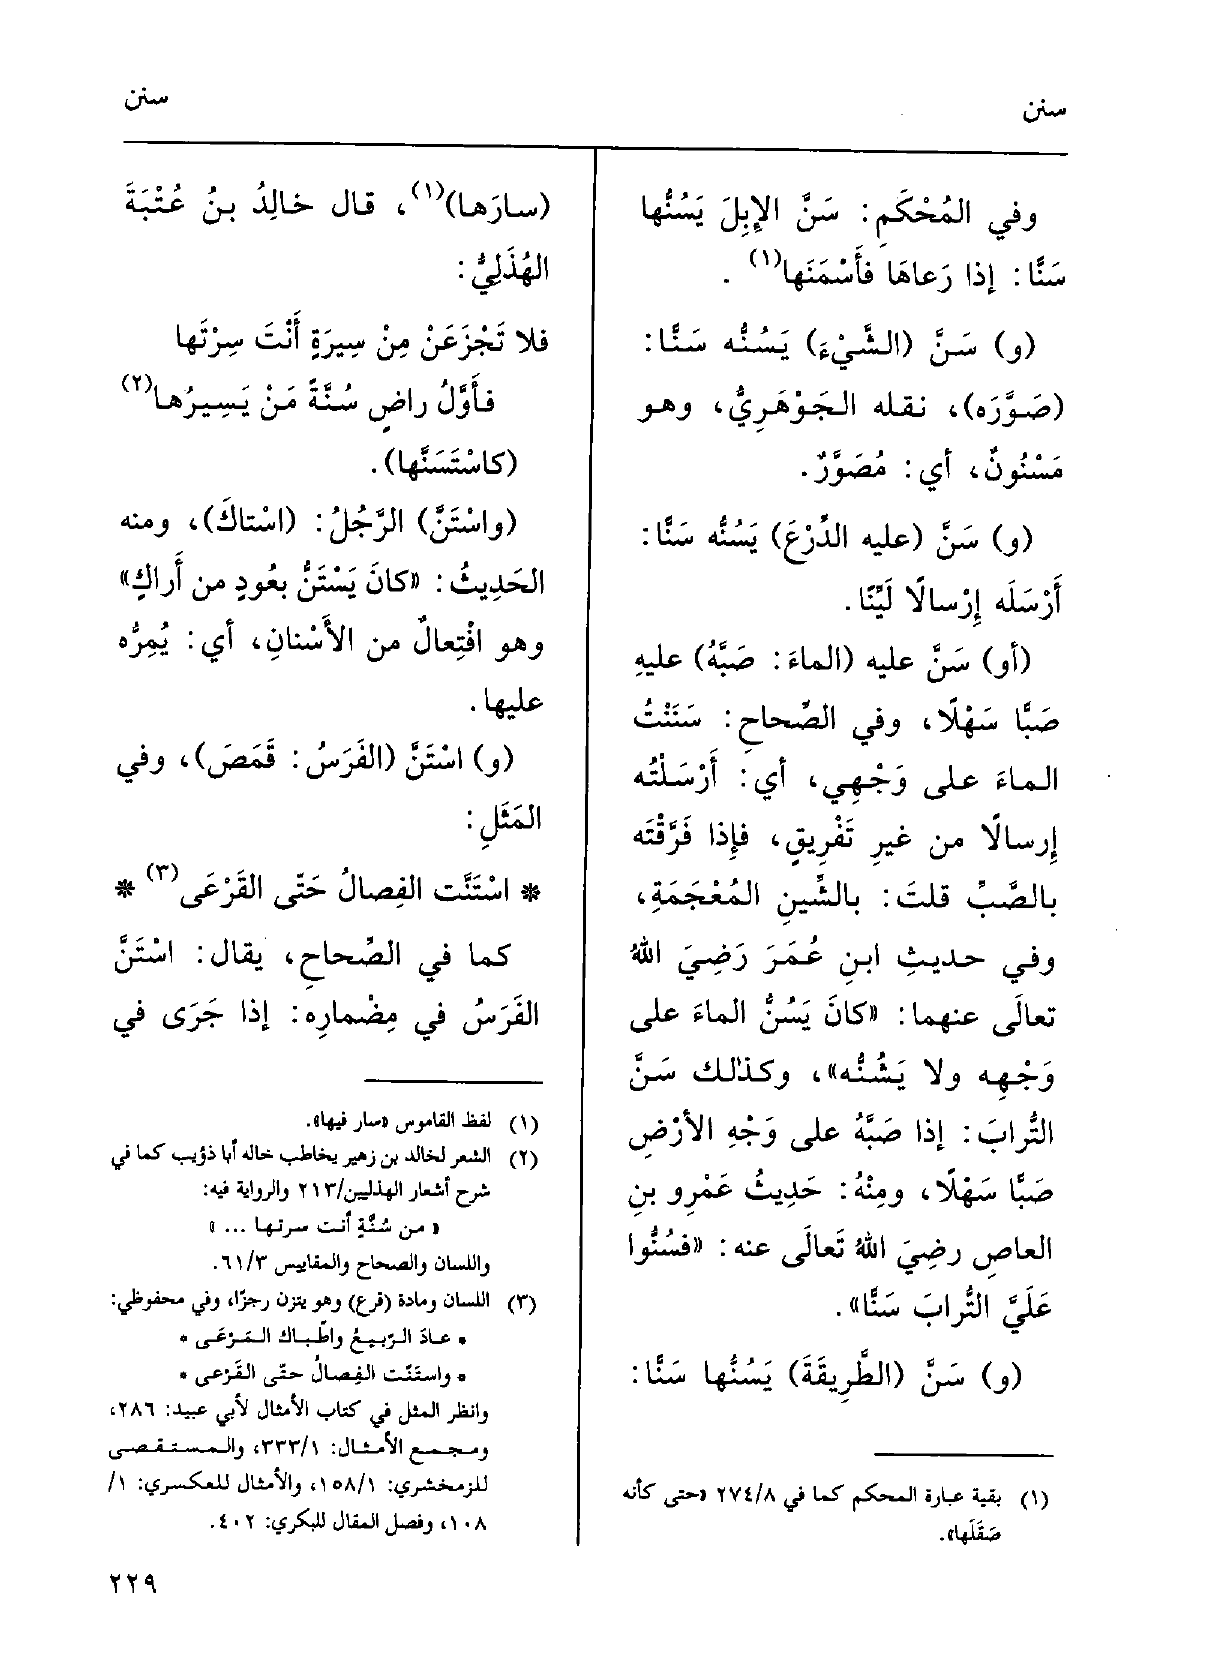 سنن
سنن
وفي المُحْكَمِ: سَنَّ الإِبِلَ يَسُنُّها
سَنًّا: إذا رَعاهَا فأَسْمَنَها(١) .
(و) سَنَّ (الشَّيْءَ) يَسُنُّه سَنًّا:
(صَوَّرَه)، نقله الجَوْهَرِيُّ، وهو
مَسْنُونٌ، أي: مُصَوَّرٌ.
(و) سَنَّ (عليه الدِّرْعَ) يَسُنُّه سَنًّا:
أَرْسَلَه إِرْسالًا لَيِّنًا.
(أو) سَنَّ عليه (الماءَ: صَبَّهُ) عليهِ
صَبًّا سَهْلًا، وفي الصِّحاحِ: سَنَنْتُ
الماءَ على وَجْهِي، أي: أَرْسَلْتُه
إِرسالًا من غيرِ تَفْرِيقٍ، فإِذا فَرَّقْتَه
بالصَّبِّ قلتَ: بالشِّينِ المُعْجَمَةِ،
وفي حديثِ ابنِ عُمَرَ رَضِيَ اللهُ
تعالَى عنهما: «كانَ يَسُنُّ الماءَ على
وَجْهِه ولا يَشُنُّه»، وكذلك سَنَّ
التُّرابَ: إذا صَبَّهُ على وَجْهِ الأَرْضِ
صَبًّا سَهْلًا، ومِنْهُ: حَدِيثُ عَمْرِو بنِ
العاصِ رضِيَ اللهُ تَعالَى عنه: «فسُنُّوا
عَلَيَّ التُّرابَ سَنًّا».
(و) سَنَّ (الطَّرِيقَةَ) يَسُنُّها سَنًّا:
(١) بقية عبارة المحكم كما في ٢٧٤/٨ «حتى كأنه
صَقَلَها».
(سارَها)(١)، قال خالِدُ بنُ عُتْبَةَ
الهُذَلِيُّ:
فلا تَجْزَعَنْ مِنْ سِيرَةٍ أَنْتَ سِرْتَها
فأَوَّلُ راضٍ سُنَّةً مَنْ يَسِيرُها(٢)
(كاسْتَسَنَّها).
(واسْتَنَّ) الرَّجُلُ: (اسْتاكَ)، ومنه
الحَدِيثُ: «كانَ يَسْتَنُّ بعُودٍ من أَراكٍ»
وهو افْتِعالٌ من الأَسْنانِ، أي: يُمِرُّه
عليها.
(و) اسْتَنَّ (الفَرَسُ: قَمَصَ)، وفي
المَثَلِ:
* اسْتَنَّت الفِصالُ حَتّى القَرْعَى(٣) *
كما في الصِّحاحِ، يقال: اسْتَنَّ
الفَرَسُ في مِضْمارِه: إذا جَرَى في
(١) لفظ القاموس «سار فيها».
(٢) الشعر لخالد بن زهير يخاطب خاله أبا ذؤيب كما في
شرح أشعار الهذليين/٢١٣ والرواية فيه:
« من سُنَّةٍ أنت سرتها ... »
واللسان والصحاح والمقاييس ٦١/٣.
(٣) اللسان ومادة (قرع) وهو يتزن رجزًا، وفي محفوظي:
* عادَ الرّبيعُ واطَّباك المَرْعَى *
* واستَنّت الفِصالُ حتّى القَرْعى *
وانظر المثل في كتاب الأمثال لأبي عبيد: ٢٨٦،
ومجمع الأمثال: ٣٣٣/١، والمستقصى
للزمخشري: ١٥٨/١، والأمثال للعكسري: ١/
١٠٨، وفصل المقال للبكري: ٤٠٢.
٢٢٩